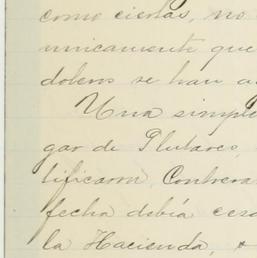 como ciertas, no
unicamente que
dolens se han a
Una simple
gar de Plutarco,
tificaron, Contrera
fecha debía cesa
la Hacienda, &